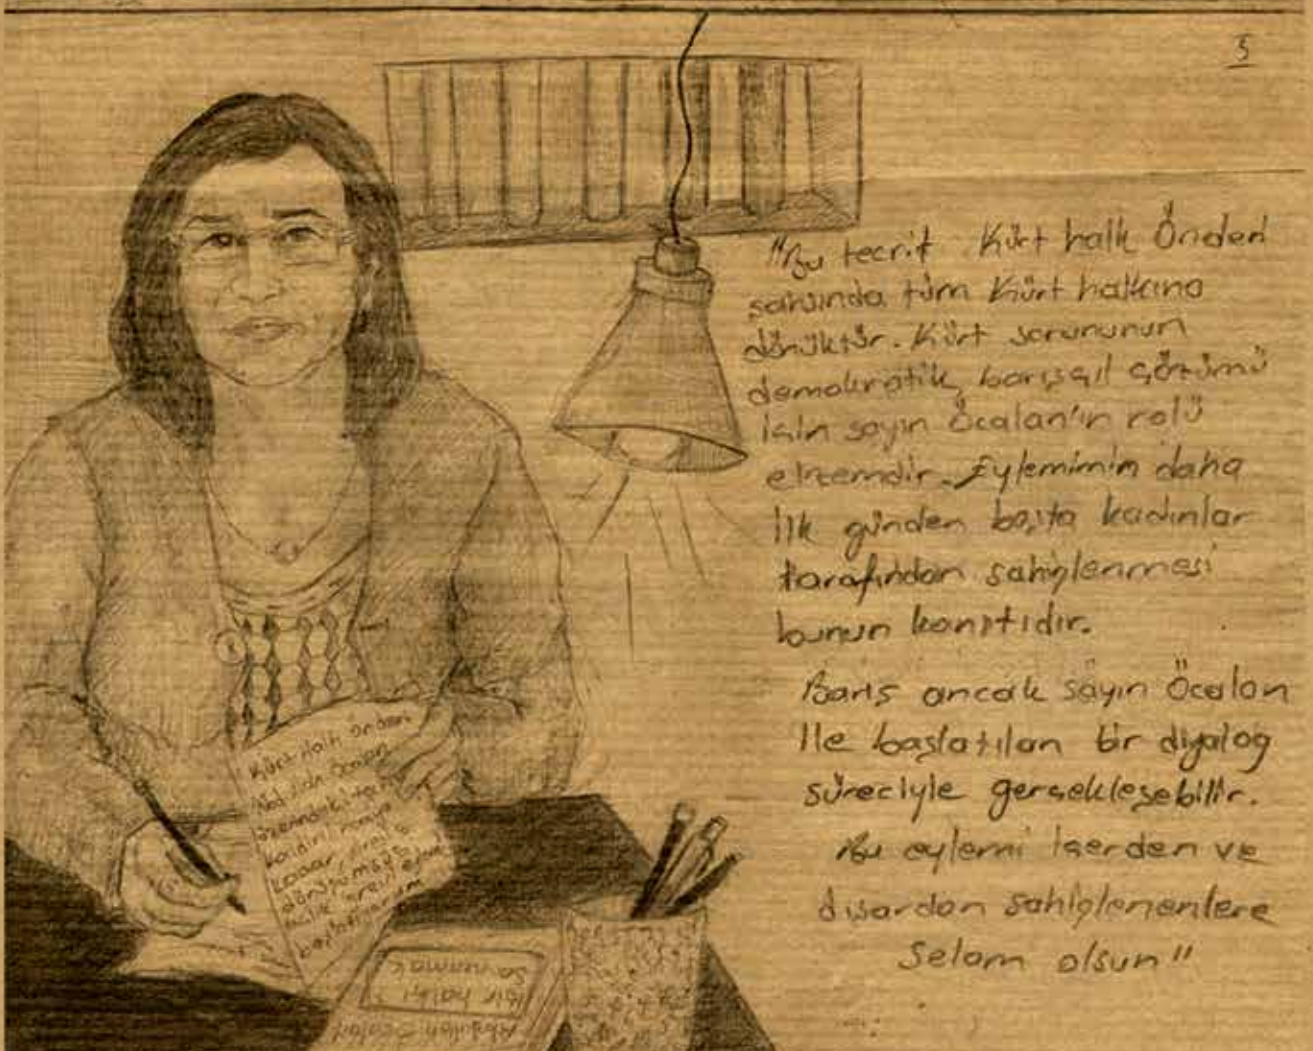 5
"Bu tecrit Kürt halk Önderi
şahsında tüm Kürt halkına
dönüktür. Kürt sorununun
demokratik, barışçıl çözümü
için sayın Öcalan'ın rolü
elzemdir. Eylemimin daha
ilk günden başta kadınlar
tarafından sahiplenmesi
bunun kanıtıdır.
Barış ancak sayın Öcalan
ile başlatılan bir diyalog
süreciyle gerçekleşebilir.
Bu eylemi içerden ve
dışardan sahiplenenlere
Selam olsun"
Kürt Halk önderi
Abdullah Öcalan
üzerindeki tecrit
açlık grevi eylemi
başlatıyorum
Abdullah Öcalan
Bir halkı
savunmak